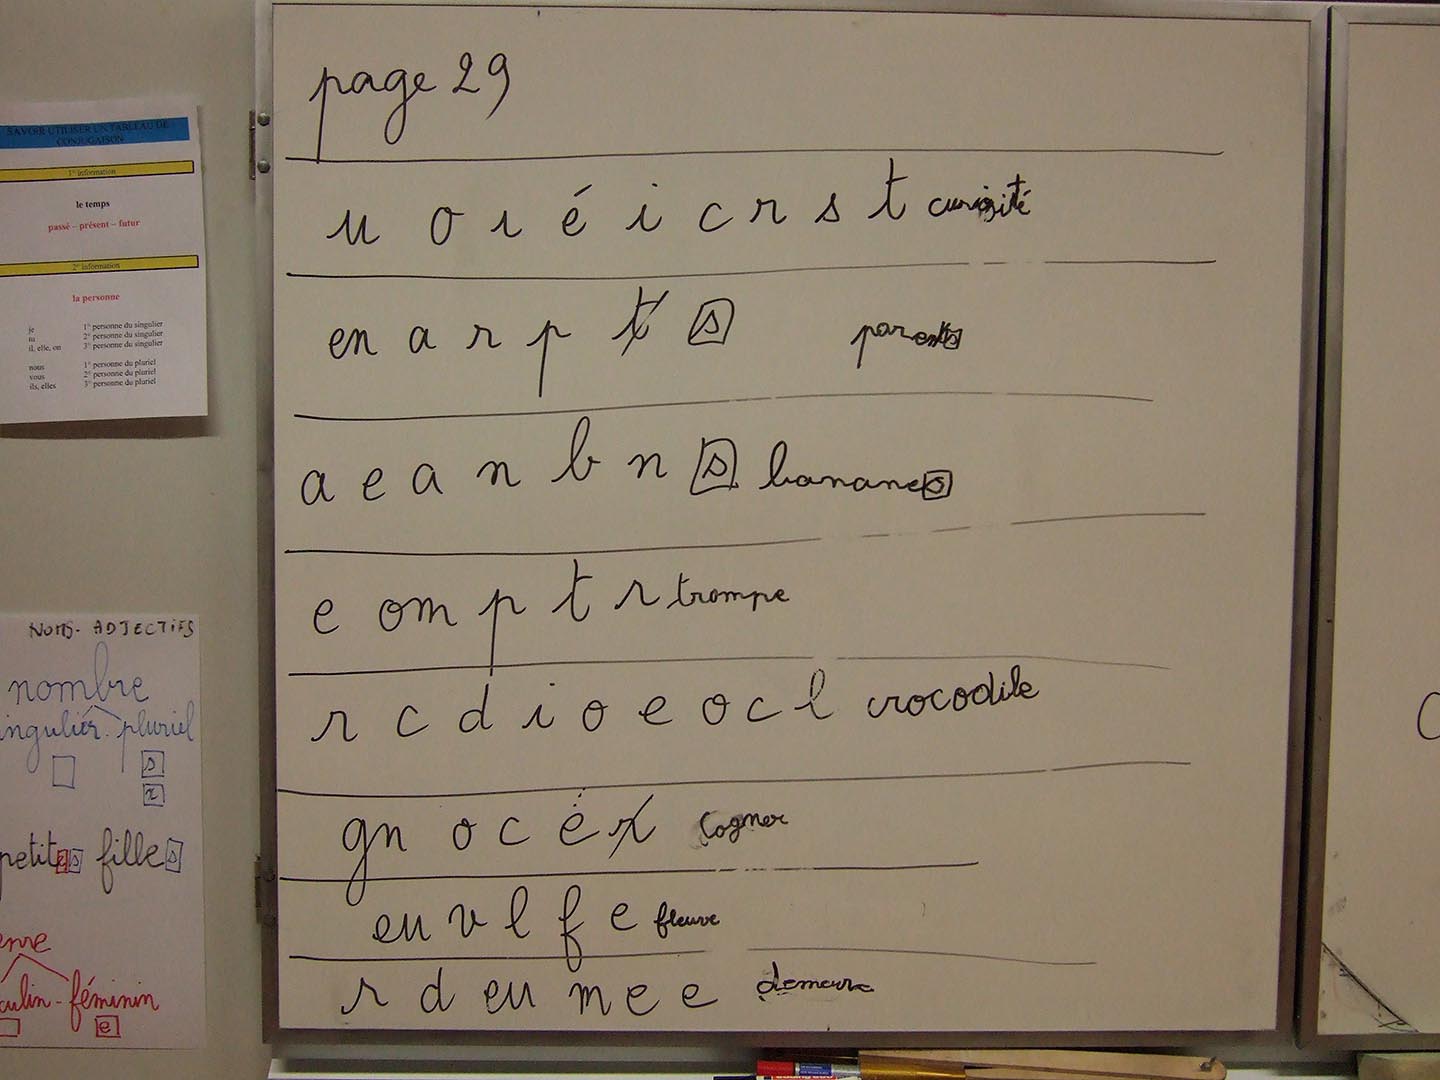 SAVOIR UTILISER UN TABLEAU DE
CONJUGAISON
1° information
le temps
passé – présent – futur
2° information
la personne
je 1° personne du singulier
tu 2° personne du singulier
il, elle, on 3° personne du singulier
nous 1° personne du pluriel
vous 2° personne du pluriel
ils, elles 3° personne du pluriel
NOMS - ADJECTIFS
nombre
ingulier - pluriel
s
x
petites filles
enre
culin - féminin
e
page 29
u o i é i c r s t curiosité
en a r p t s parents
a e a n b n s bananes
e om p t r trompe
r c d i o e o c l crocodile
gn o c e r cogner
eu v l f e fleuve
r d eu m e e demeure